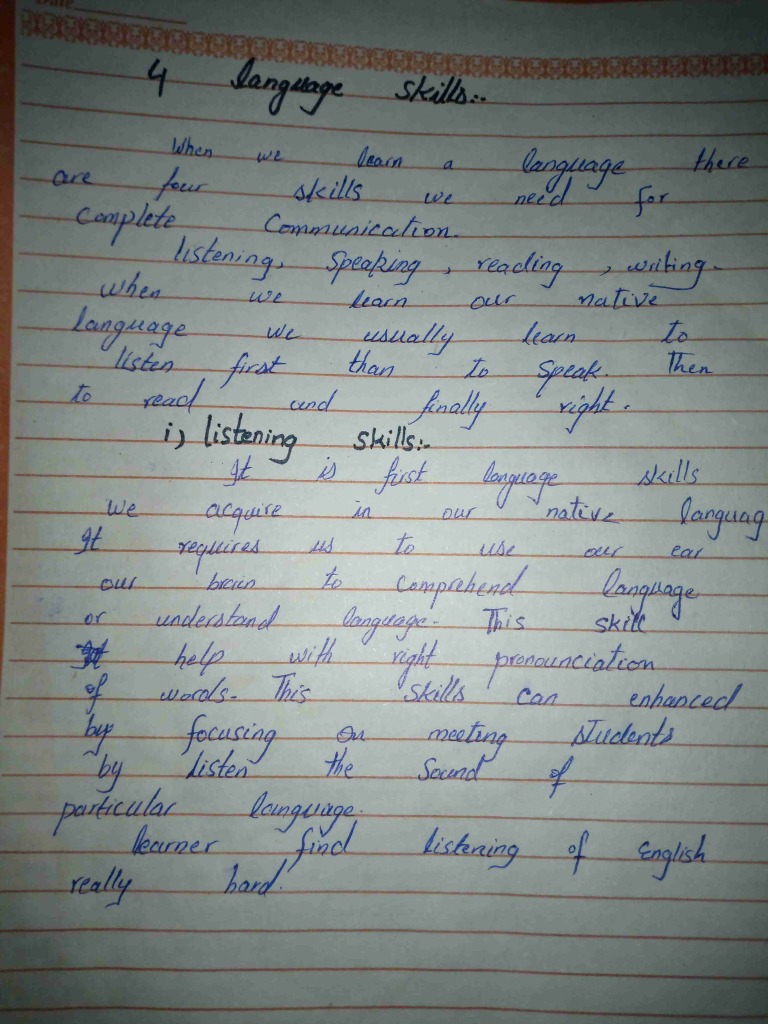 Date
4 language skills:-
When we learn a language there
are four skills we need for
complete communication.
listening, speaking, reading, writing.
when we learn our native
language we usually learn to
listen first than to speak. Then
to read and finally right.
i) listening skills:-
It is first language skills
we acquire in our native languag
It requires us to use our ear
our brain to comprehend language
or understand language. This skill
help with right pronounciation
of words. This skills can enhanced
by focusing on meeting students
by listen the sound of
particular language.
learner find listening of English
really hard.